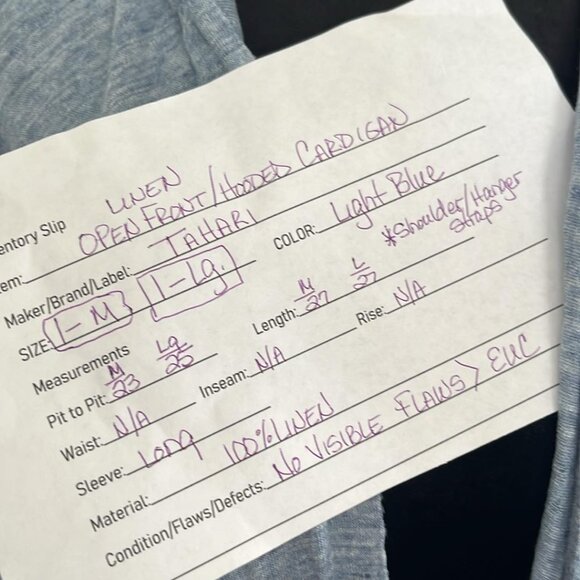 entory Slip
LINEN
em: OPEN FRONT/HOODED CARDIGAN
Maker/Brand/Label: TAHARI
SIZE: 1-M 1-Lg. COLOR: Light Blue
*Shoulder/Hanger
Straps
Measurements
M Lg M L
Pit to Pit: 23 25 Length: 27 27
Waist: N/A Inseam: N/A Rise: N/A
Sleeve: Long
Material: 100% LINEN
Condition/Flaws/Defects: No VISIBLE FLAWS> EUC